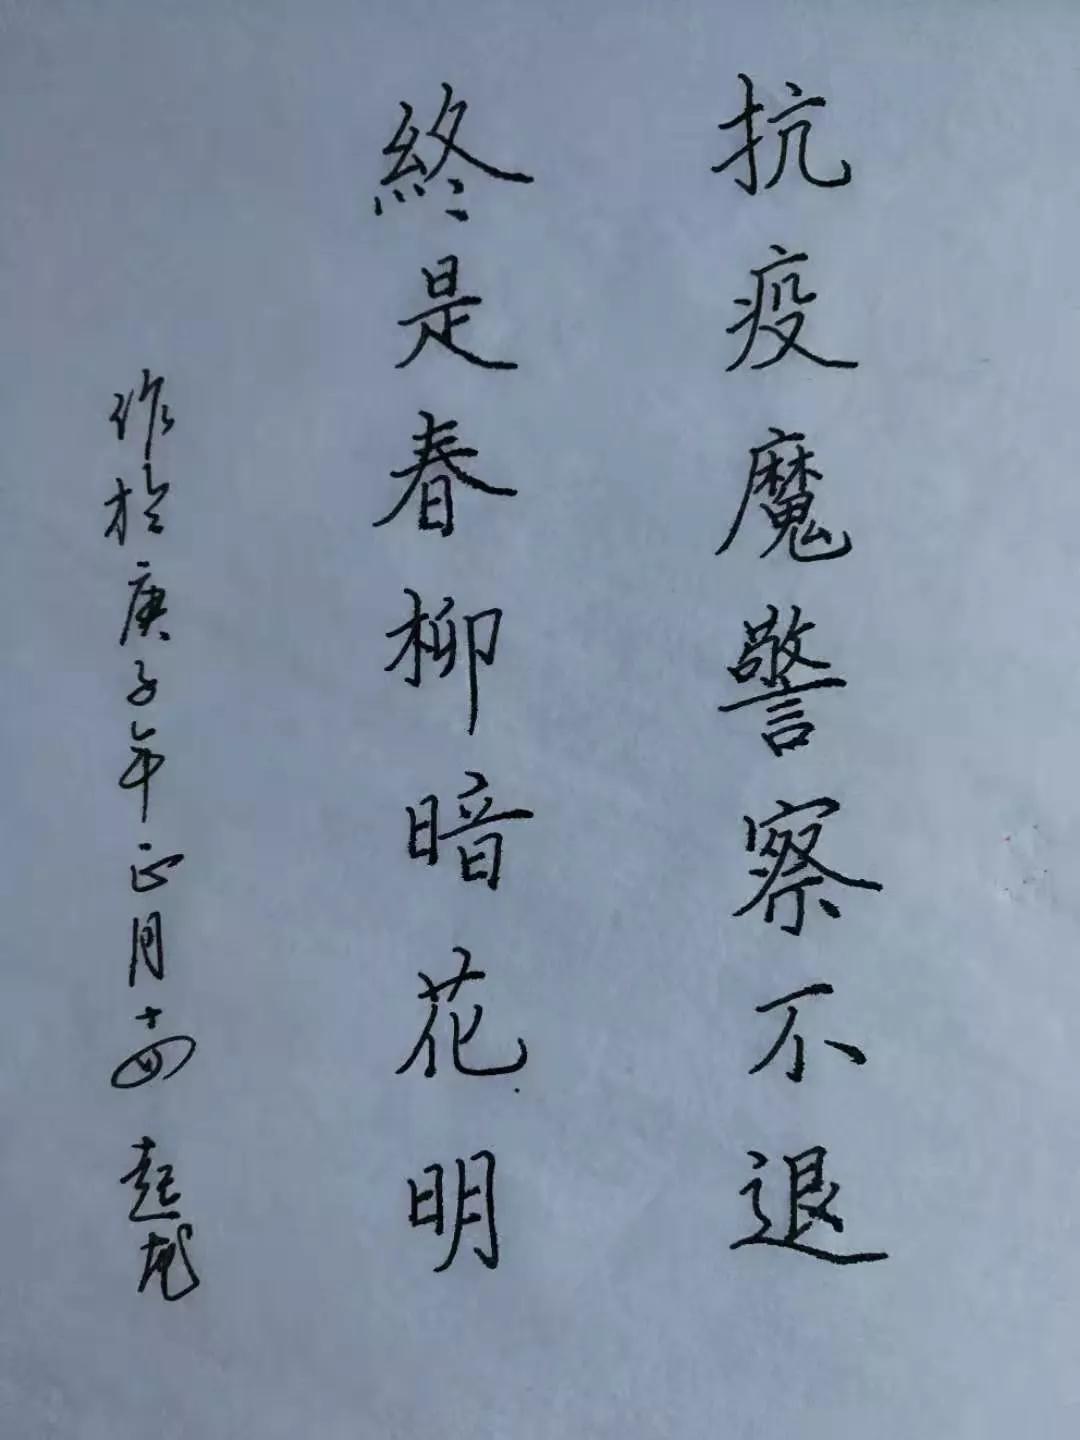 抗疫魔警察不退
終是春柳暗花明
作於庚子年正月十四 起龙